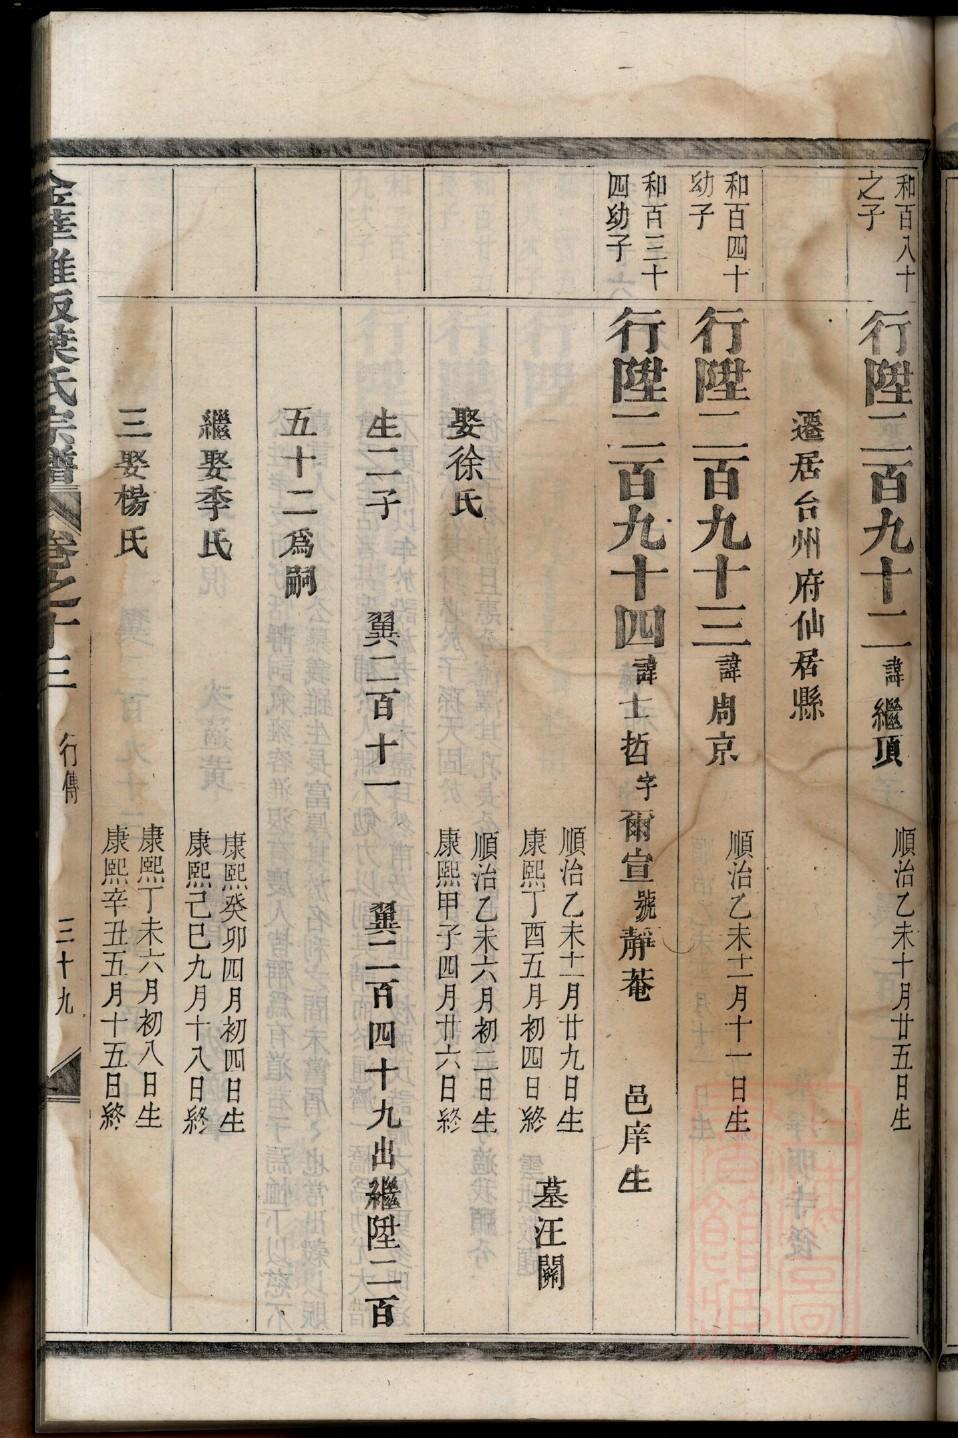 和百八十
之子
行陞二百九十二 諱繼頂 順治乙未十月廿五日生
遷居台州府仙居縣
和百四十
幼子
行陞二百九十三 諱周京 順治乙未十二月十一日生
和百三十
四幼子
行陞二百九十四 諱士哲 字爾宣 號靜菴 邑庠生
順治乙未十一月廿九日生
康熙丁酉五月初四日終
墓汪關
娶徐氏
順治乙未六月初二日生
康熙甲子四月廿六日終
生二子 翼二百十一 翼二百四十九出繼陞二百
五十二為嗣
繼娶季氏
康熙癸卯四月初四日生
康熙己巳九月十八日終
三娶楊氏
康熙丁未六月初八日生
康熙辛丑五月十五日終
葉氏宗譜 卷之十三 行傳 三十九